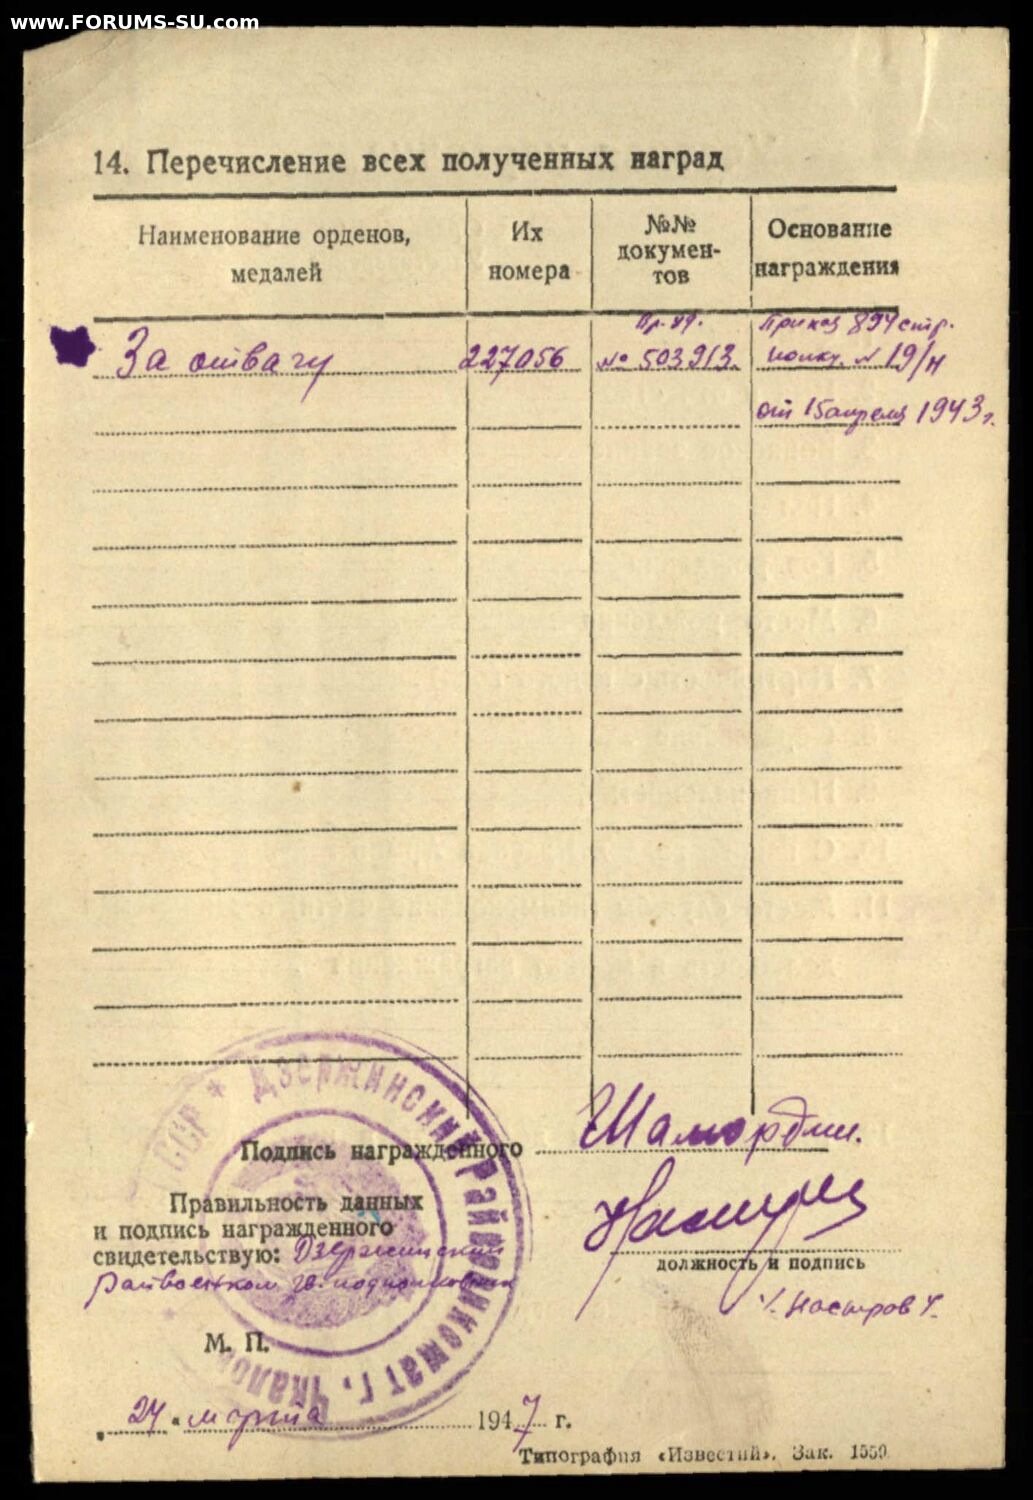 www.FORUMS-SU.com
14. Перечисление всех полученных наград
Наименование орденов, медалей
Их номера
№№ документов
Основание награждения
За отвагу
227056
Вр. уд.
№ 503913.
Приказ 894 стр.
полку. № 19/н
от 15 апреля 1943 г.
СССР * Дзержинский райвоенкомат г. Чкалов
Подпись награжденного
Шамордин.
Правильность данных
и подпись награжденного
свидетельствую: Дзержинский
Райвоенком гв. подполковник
должность и подпись
/. Насыров /.
М. П.
„ 24 “ марта 1947 г.
Типография «Известий». Зак. 1559